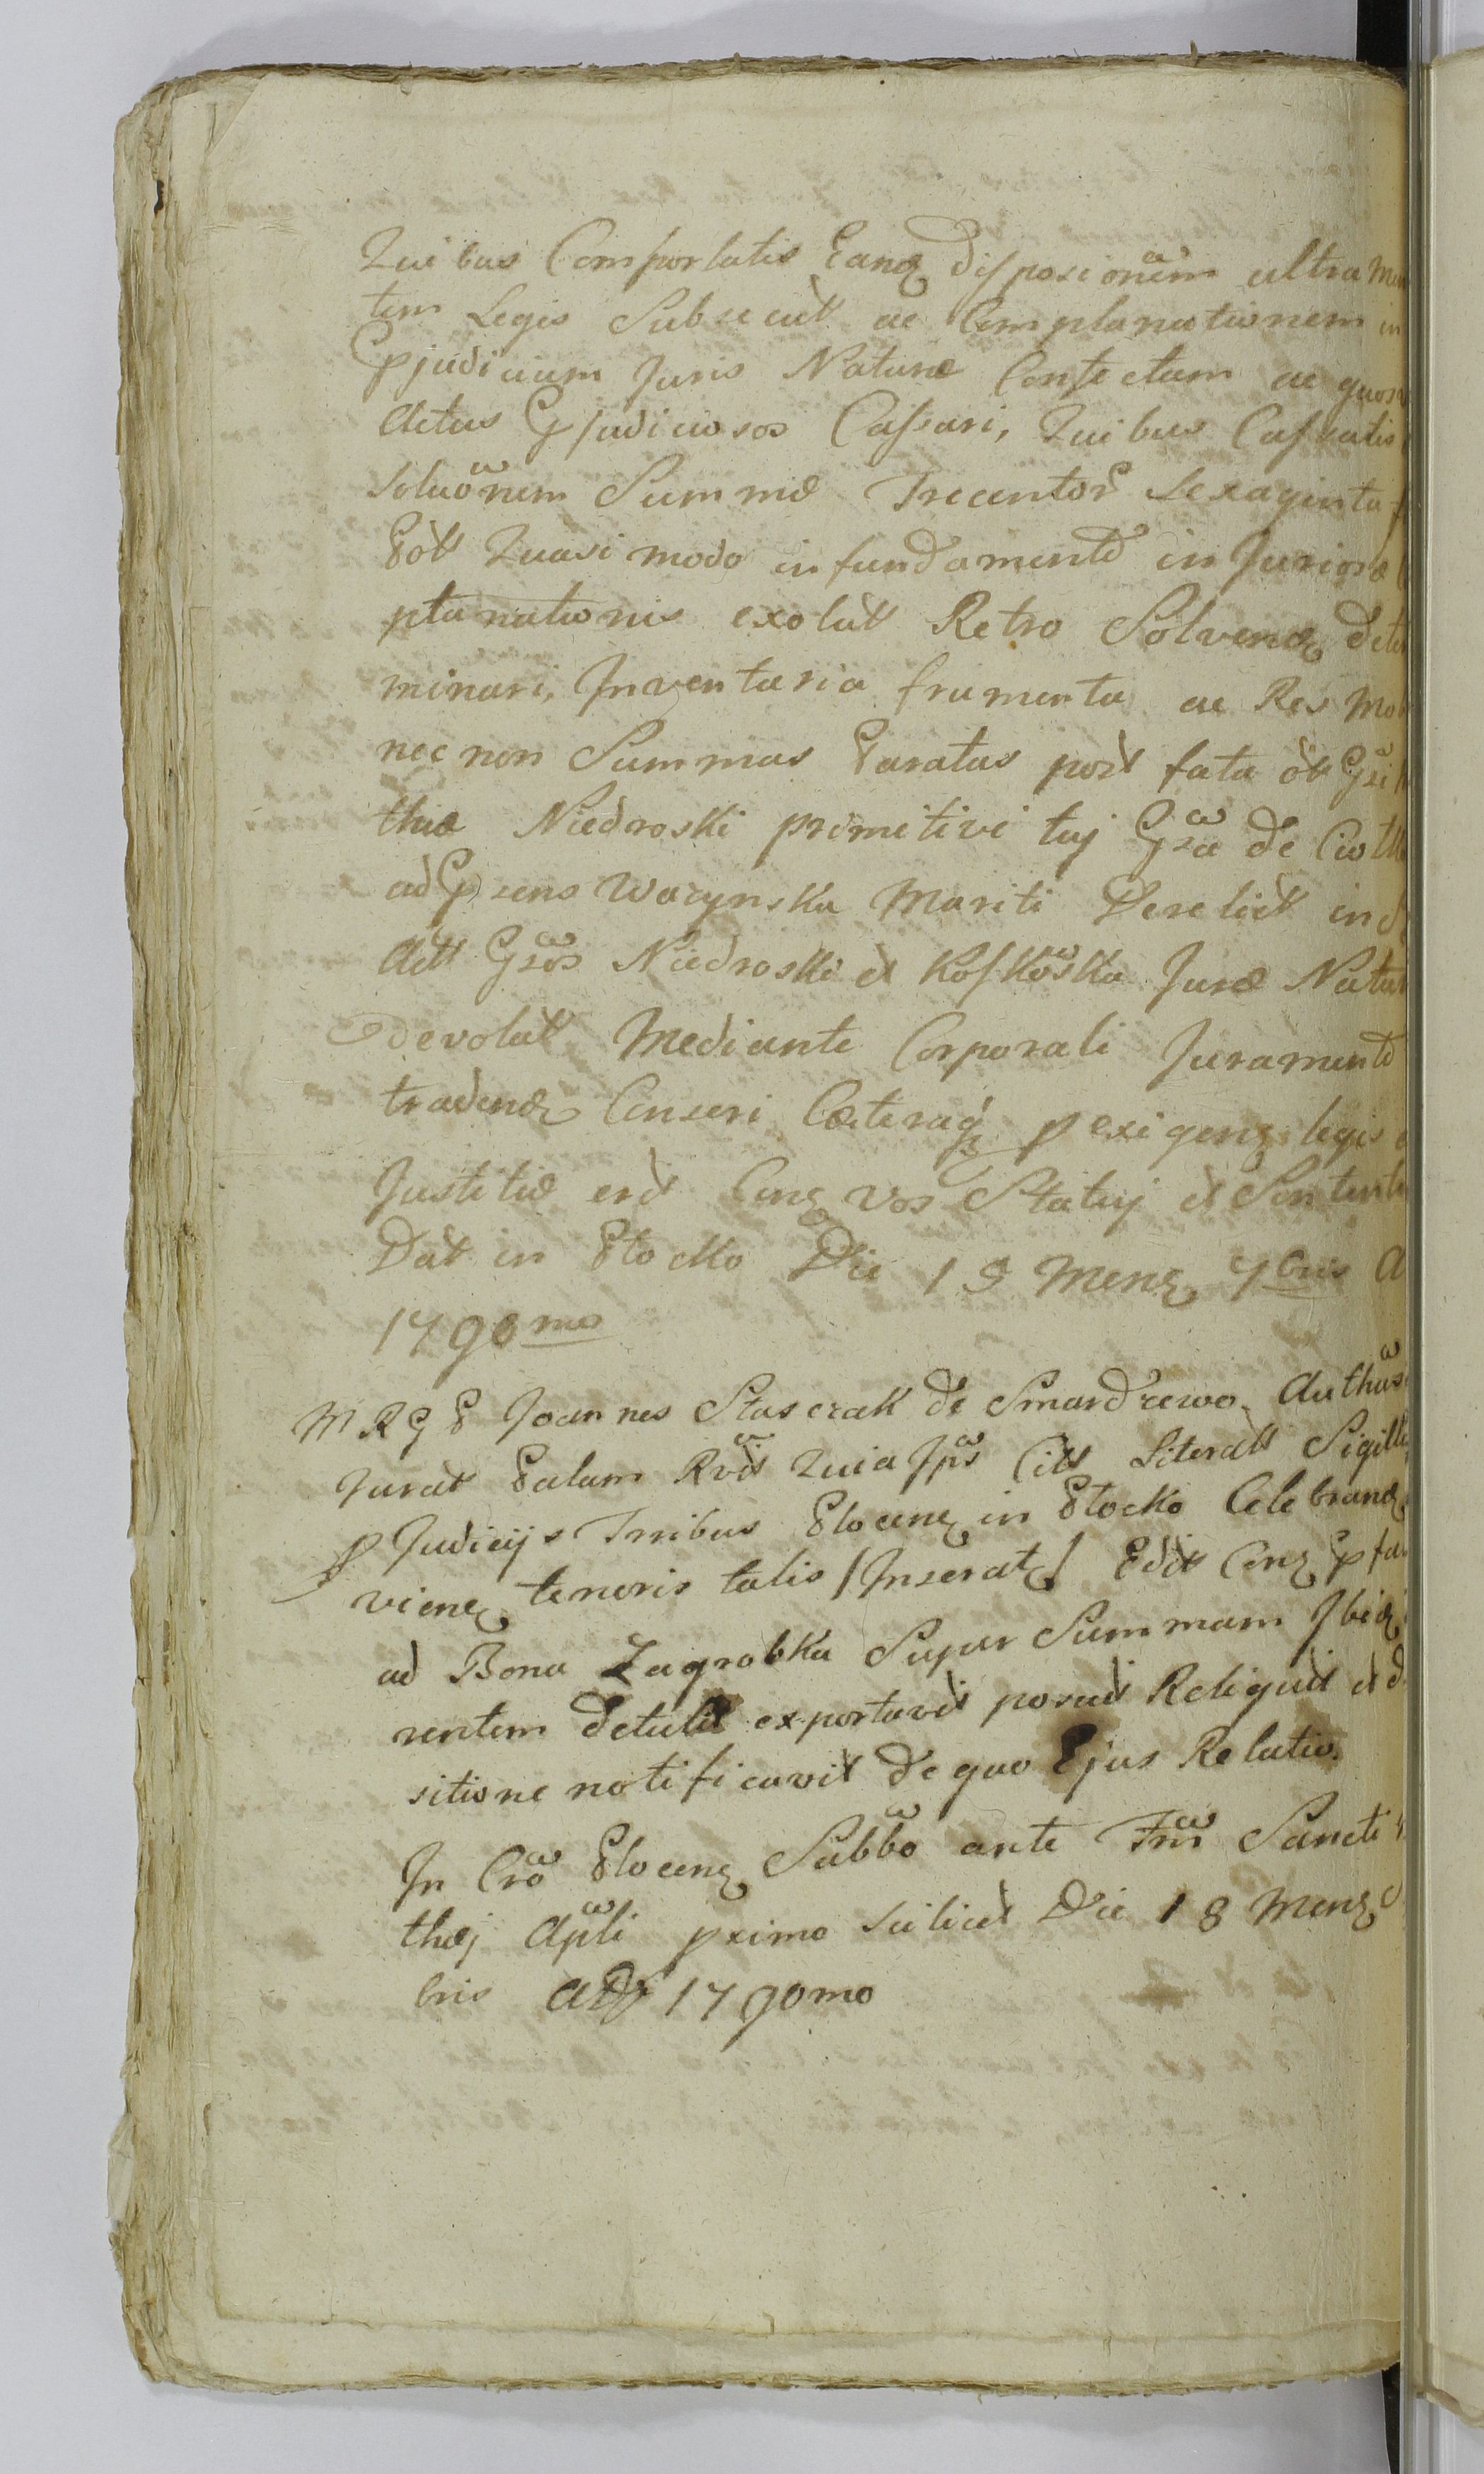 Quibus Comportatis Eanq disposionem ultra Men
tem Legis Subsecut ac Complanationem in
Pjudicium Juris Naturæ Confectam ac quosv
Actus Pjudiciosos Cassari, Quibus Cassatis
soluonem Summæ Trecentor Sexaginta
Pol Quasi modo in fundamento in Juriosæ
planationis exolut Retro Solvend deter
minari, Inventaria frumenta ac Res Mob
nec non Summas Paratas post fata ol
thiæ Niedroski primitivi tuj Gsa de
ad Psens Waczynska Mariti Derelict
Act Gsos Niedroski et Koskowska Juræ Natur
devolut Mediante Corporali Jurament
tradend Censeri Cæteraq p exigenz legis
Justitiæ erit Cenz vos Statuj et Sententi
Dat in Plocko Die 18 Menz 7bris A
1790mo
M R G P Joannes Stasczak de Smardzewo Authus
Jurat Palam Rvit Quia Jps Citt Literatt Sigill
p Judicijs Trribus Plocenz in Plocko Celebrand
vienz tenoris talis /Inserat/ Edit Cenz
ad Bona Zagrobka Super Summam Ibid
rentem detulit exportavit posuit Reliquit et d
sitione notificavit de quo Ejus Relatio.
In Cro Plocenz Sabbo ante Fm Sancti
thæj Apli pximo scilicet Die 18 Menz
bris AD 1790mo